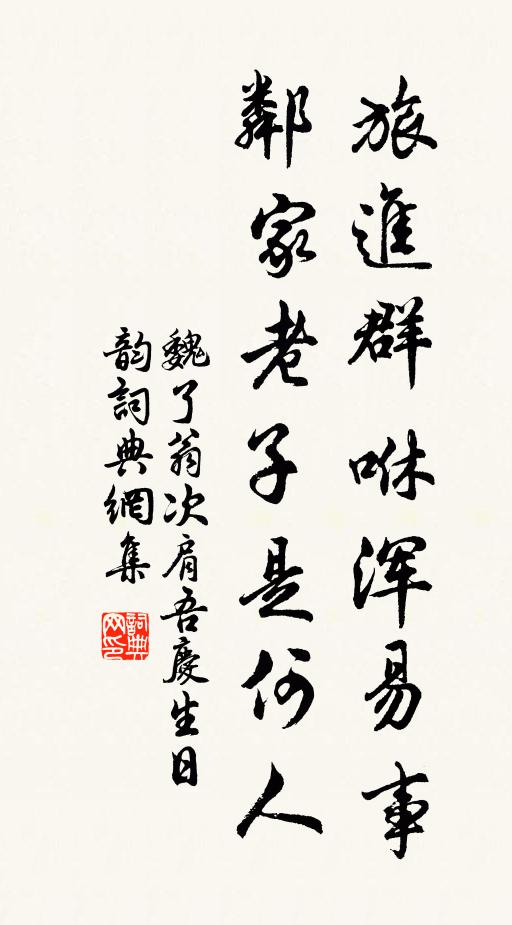 旅進群咻渾易事
鄰家老子是何人
魏了翁次肩吾慶生日
韵詞典網集
詞典网印